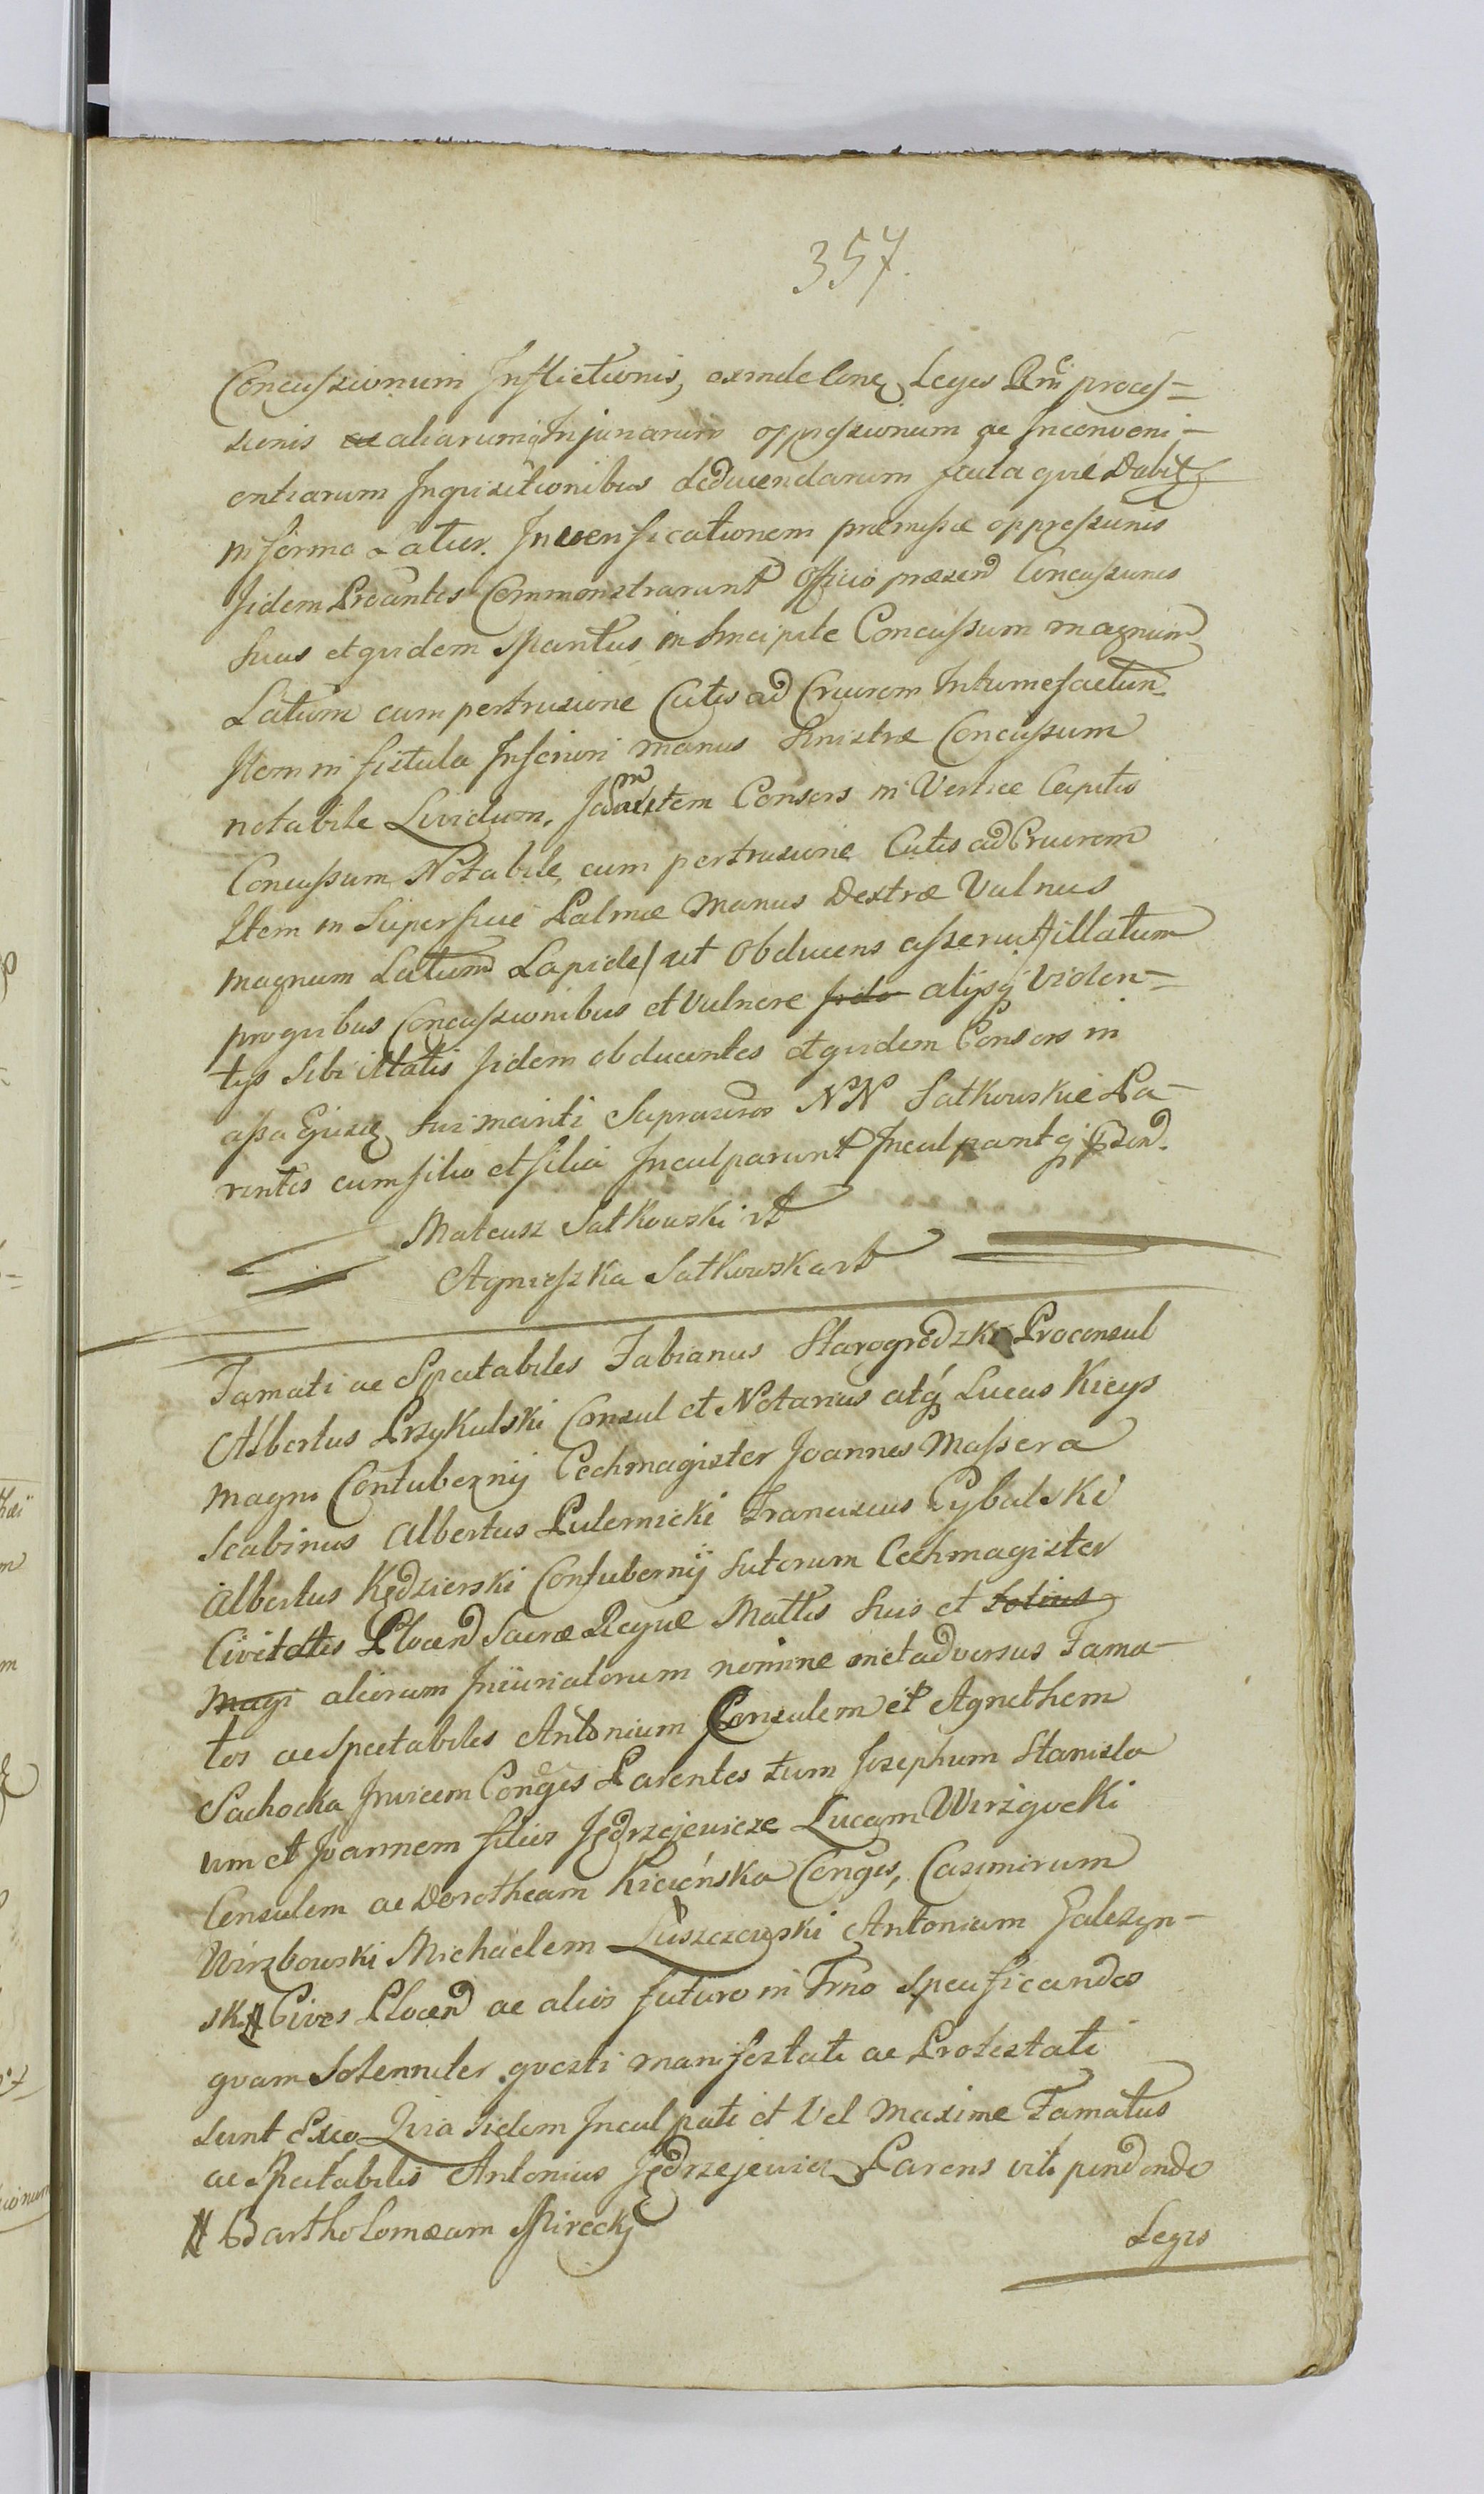 357.
Concussionum Inflictionis, exinde Conq Leges Rni proces=
sionis aliarumq Injuriarum oppressionum ac Inconveni-
entiarum Inquisitionibus deducendarum facta que Dabit
in forma Latius. In verificationem præmissæ oppressionis
Iidem Protantes Commonstrarunt Officio præsend Concussiones
suas et quidem Spantus in Sincipite Concussum magnum
Latum cum pertrusione Cutis ad Cruorem Intumefactum
Item in fistula Inferiori manus Sinistræ Concussum
notabile Lividum, item Consors in Vertice Capitis
Concussum Notabile, cum pertrusione Cutis ad Cruorem
Item in Superficie Palmæ Manus Dextræ Vulnus
magnum Latum Lapide/ut Obducens asseruit/illatum
pro quibus Concussionibus et Vulnere alijsq Violen=
tijs Sibi illatis Iidem obducentes et quidem Consors in
assa sui mariti Suprascros NN Satkowskie Pa-
rentes cum filio et filia Inculparunt Inculpantq Psend.
Mateusz Satkowski
Agnieszka Satkowska
Famati ac Spectabiles Fabianus Starogrodzki Proconsul
Albertus Przykulski Consul et Notarius atq Lucas Kieys
magni Contubernij Cechmagister Joannes Massera
Scabinus Albertus Lulernicki Franciscus Cybulski
Albertus Kędzierski Contubernij Sutorum Cechmagister
Civitatis Plocen Sacræ Regiæ Mattis Suis et totius
magi aliorum Iniuriatorum nomine met adversus Fama-
tos ac Spectabiles Antonium Consulem et Agnethem
Sachocka Invicem Conges Parentes tum Josephum Stanisla
um et Joannem filios Jędrzejewicze Lucam Wirzgocki
Consulem ac Dorotheam Kicińska Conges, Casimirum
Wirzbowski Michaelem Luszczewski Antonium Galczyn-
ski # Cives Plocen ac alios futuro in Trno Specificandos
quam Solenniter questi manifestati ac Protestati
sunt Quia Iidem Inculpati et Vel maxime Famatus
ac Spectabilis Antonius Jędrzejewicz Parens vili pendendo
# Bartholomæum Mirecky
Legis